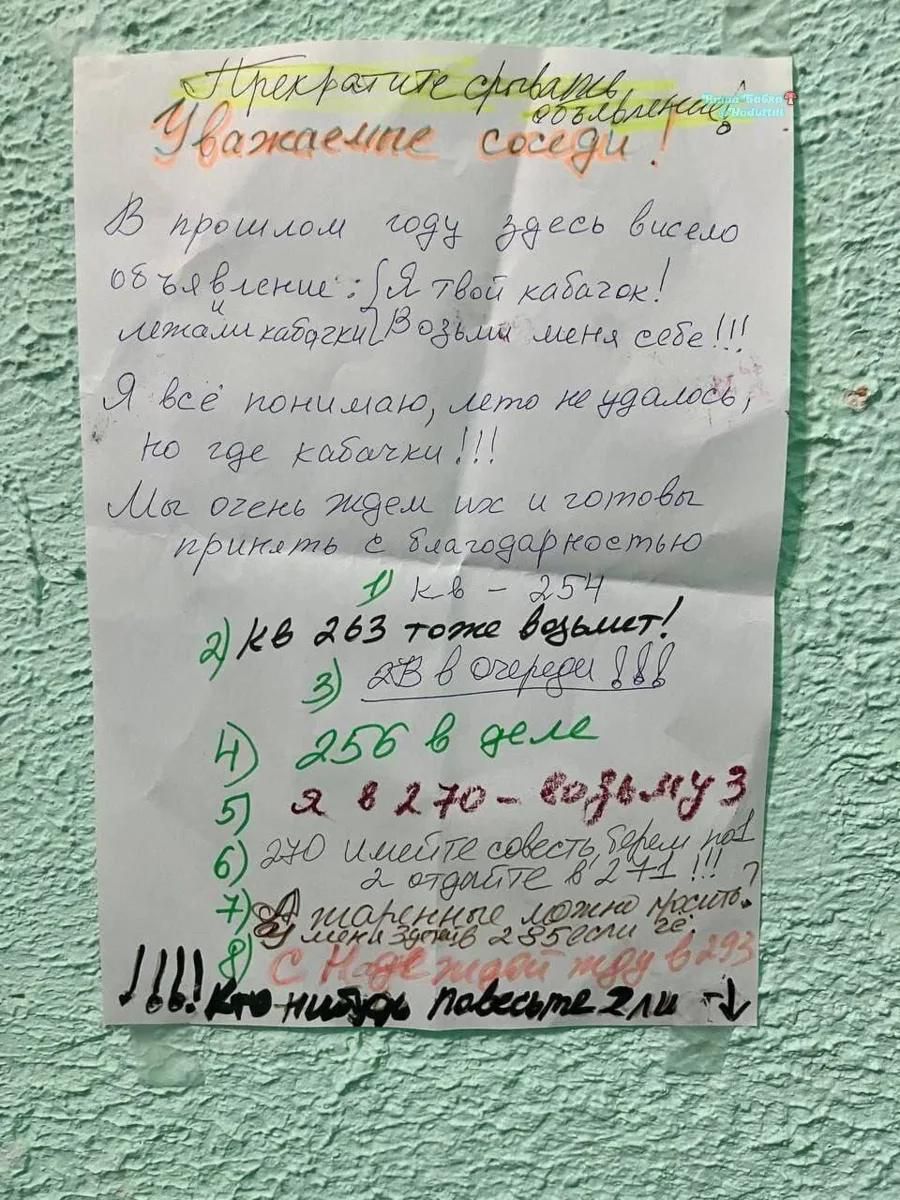 Прекратите срывать
объявление!
Уважаемые соседи!
В прошлом году здесь висело
объявление: Я твой кабачок!
и
лежали кабачки Возьми меня себе!!!
Я всё понимаю, лето не удалось,
но где кабачки!!!
Мы очень ждем их и готовы
принять с благодарностью
1) кв - 254
2) кв 263 тоже возьмет!
3) в очереди!!!
4) 256 в деле
5) Я в 270 - возьму 3
6) 270 имейте совесть, берем по 1
2 отдайте в 271!!!
7) А жаренные можно носить?
У меня в 295 если чё.
8) С Надеждой жду в 293
!!!! Кто нибудь повесьте 2 ли